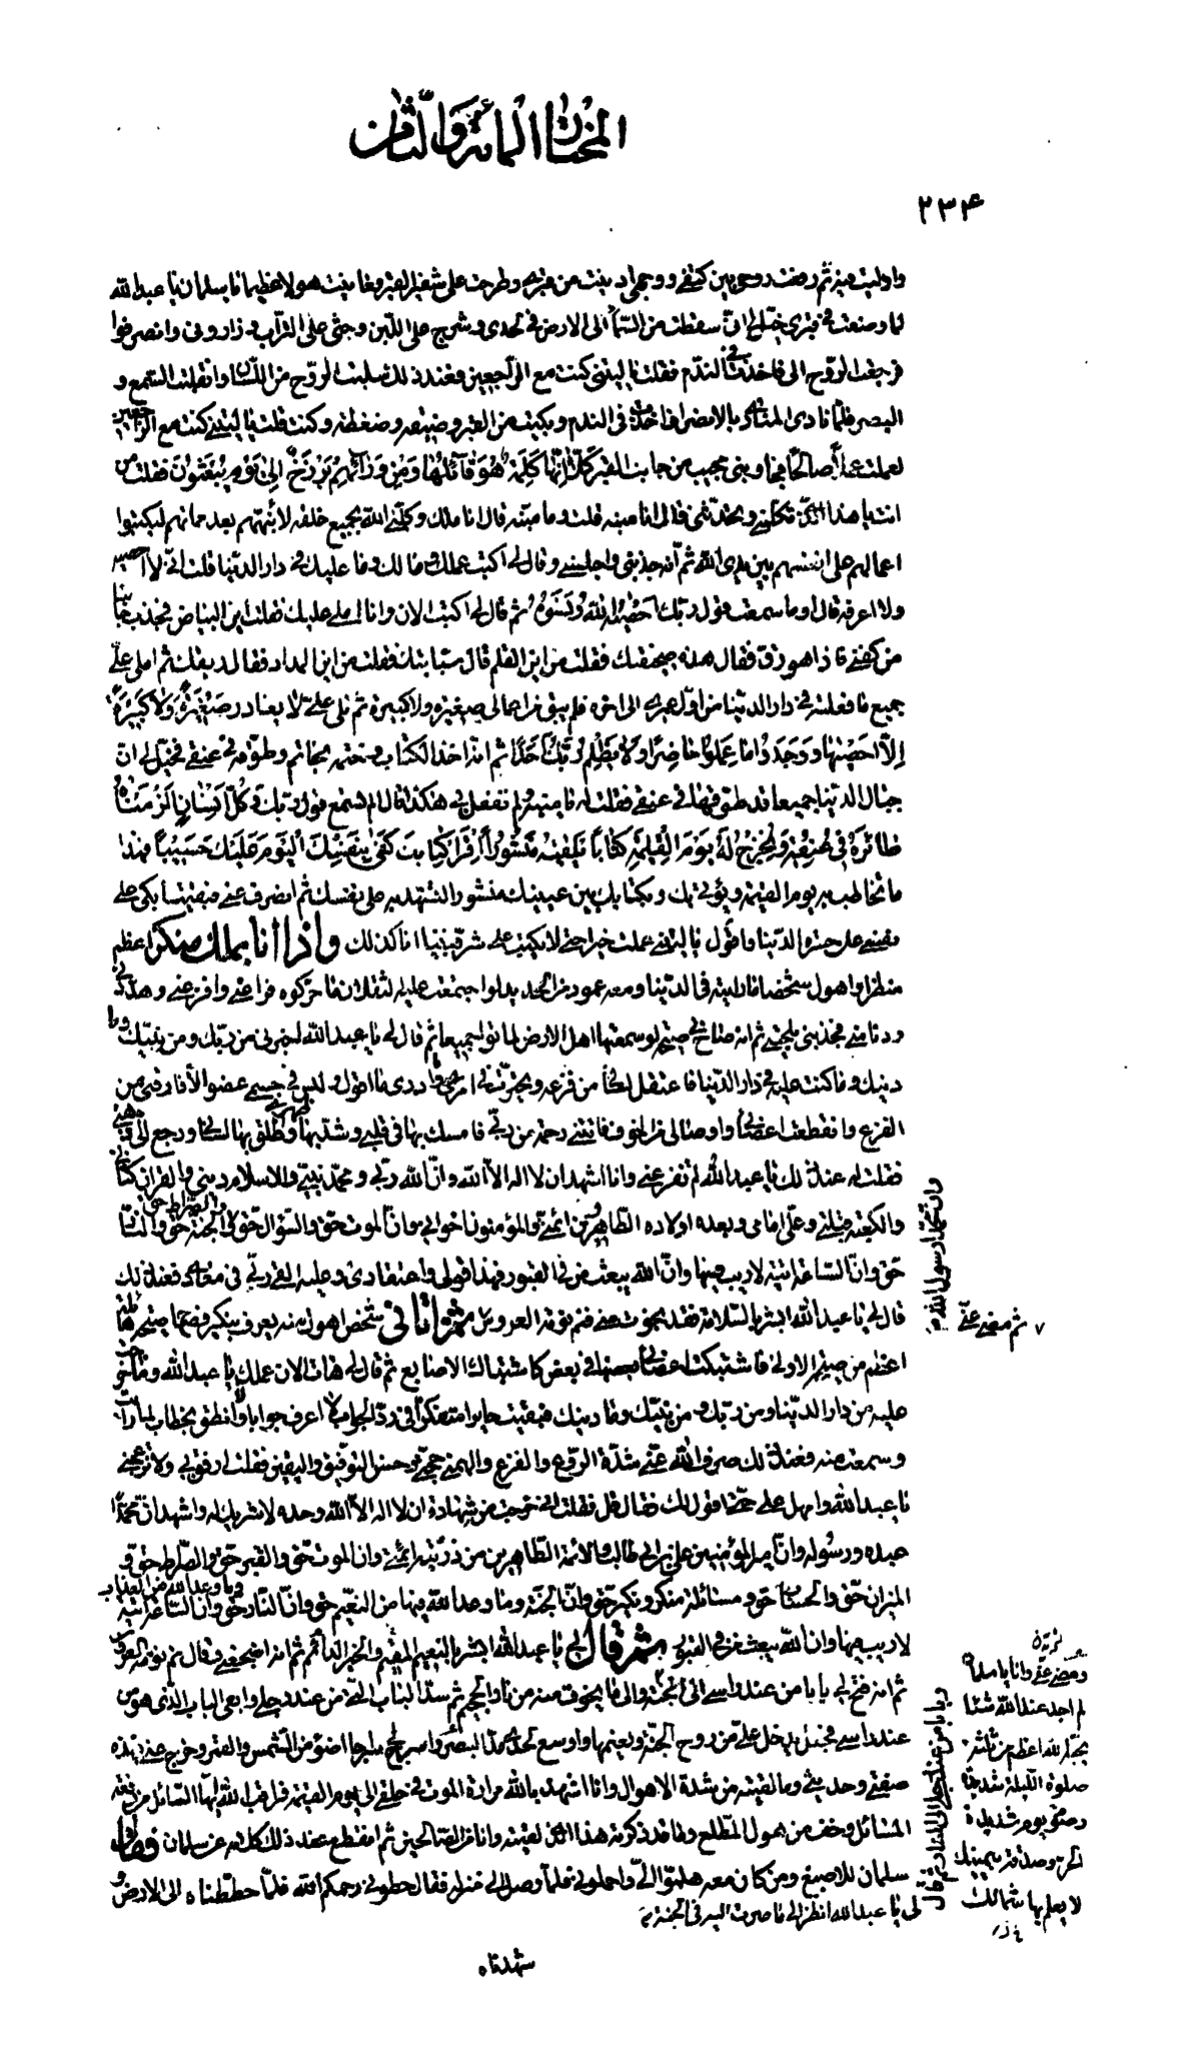 المختار المائة والثامن
۲۳۴
وادليت فيه ثم رفعت روحي بين كتفي ووجهي ادنيت من قبري وطرحت على شفير القبر فعاينت هولا عظيما يا سلمان يا عبد الله
لما وضعت في قبري خيل لي اني سقطت من السماء الى الارض في لحدي وشرج علي اللبن وحثي علي التراب وزاروني وانصرفوا
فرجعت الروح الي فاخذت في الندم فقلت يا ليتني كنت مع الراجعين فعند ذلك سلبت الروح من اللسان وانقلب السمع و
البصر فلما نادى المنادي بالانصراف اخذت في الندم وبكيت من القبر وضيقه وضغطه وكنت قلت يا ليتني كنت مع الراجعين
لعملت عملا صالحا فجاوبني مجيب من جانب القبر كَلَّا إِنَّهَا كَلِمَةٌ هُوَ قَائِلُهَا وَمِنْ وَرَائِهِمْ بَرْزَخٌ إِلَى يَوْمِ يُبْعَثُونَ فقلت من
انت يا هذا الذي تكلمني وتحدثني فقال انا منبه قلت وما منبه قال انا ملك وكلني الله بجميع خلقه لانبههم بعد مماتهم ليكتبوا
اعمالهم على انفسهم بين يدي الله ثم انه جذبني واجلسني وقال لي اكتب عملك وما لك وما عليك في دار الدنيا قلت اني لا احصيه
ولا اعرفه قال او ما سمعت قول ربك أَحْصَاهُ اللَّهُ وَنَسُوهُ ثم قال لي اكتب الان وانا املي عليك فقلت اين البياض فجذب جانبا
من كفني فاذا هو رق فقال هذه صحيفتك فقلت من اين القلم قال سبابتك فقلت من اين المداد فقال ريقك ثم املى علي
جميع ما فعلته في دار الدنيا من اول عمري الى اخره فلم يبق من اعمالي صغيرة ولا كبيرة ثم تلى علي لا يغادر صَغِيرَةً وَلَا كَبِيرَةً
إِلَّا أَحْصَيهَا وَوَجَدُوا مَا عَمِلُوا حَاضِرًا وَلَا يَظْلِمُ رَبُّكَ أَحَدًا ثم انه اخذ الكتاب وختمه بخاتم وطوقه في عنقي فخيل لي ان
جبال الدنيا جميعا قد طوقها في عنقي فقلت له يا منبه ولم تفعل بي هكذا قال الم تسمع قول ربك وَكُلَّ إِنْسَانٍ أَلْزَمْنَاهُ
طَائِرَهُ فِي عُنُقِهِ وَنُخْرِجُ لَهُ يَوْمَ الْقِيمَةِ كِتَابًا يَلْقَيهُ مَنْشُورًا اقْرَأْ كِتَابَكَ كَفَى بِنَفْسِكَ الْيَوْمَ عَلَيْكَ حَسِيبًا فهذا
ما تخاطب به يوم القيمة ويؤتى بك وبكتابك بين عينيك منشورا لتشهد به على نفسك ثم انصرف عني فبقيت ابكي على
نفسي على حسرة الدنيا واقول يا ليتني عملت خيرا حتى لا يكتب علي شر فبينا انا كذلك واذا انا بملك منكر اعظم
منظرا واهول شخصا ما رايته في الدنيا ومعه عمود من الحديد لو اجتمعت عليه الثقلان ما حركوه فراعني وافزعني وهددني
ودنا مني فجذبني بلحيتي ثم انه صاح بي صيحة لو سمعتها اهل الارض لماتوا جميعا ثم قال لي يا عبد الله اخبرني من ربك ومن نبيك وما
دينك وما كنت عليه في دار الدنيا فاعتقل لساني من فزعه وتحيرت في امري وما ادري ما اقول وليس في جسمي عضو الا فارقني من
الفزع وانقطعت اعضائي واوصالي من الخوف فاتتني رحمة من ربي فامسك بها قلبي وشد بها ظهري واطلق بها لساني ورجع الي ذهني
فقلت له عند ذلك يا عبد الله لم تفزعني وانا اشهد ان لا اله الا الله وان الله ربي ومحمد نبيي والاسلام ديني والقران كتابي
والكعبة قبلتي وعلي امامي وبعده اولاده الطاهرين ائمتي والمؤمنون اخواني وان الموت حق والسؤال حق والصراط حق والجنة حق والنار
حق وان الساعة اتية لا ريب فيها وان الله يبعث من في القبور فهذا قولي واعتقادي وعليه القى ربي في معادي فعند ذلك
قال لي يا عبد الله ابشر بالسلامة فقد نجوت مني فنم نومة العروس ثم اتاني شخص اهول منه يعرف بنكير فصاح صيحة هائلة
اعظم من صيحة الاولى فاشتبكت اعضائي بعضها في بعض كاشتباك الاصابع ثم قال لي هات الان عملك يا عبد الله وما خرجت
عليه من دار الدنيا ومن ربك ومن نبيك وما دينك فبقيت حايرا متفكرا في رد الجواب لا اعرف جوابا ولا انطق بخطاب لما رايت
وسمعت منه فعند ذلك صرف الله عني شدة الروع والفزع والهمني حجتي وحسن التوفيق واليقين فقلت ارفق بي ولا تزعجني
يا عبد الله وامهل علي حتى اقول لك فقال قل فقلت اني خرجت من شهادة ان لا اله الا الله وحده لا شريك له واشهد ان محمدا
عبده ورسوله وان امير المؤمنين علي بن ابي طالب والائمة الطاهرين من ذريته ائمتي وان الموت حق والقبر حق والصراط حق و
الميزان حق والحساب حق ومسائلة منكر ونكير حق وان الجنة وما وعد الله فيها من النعيم حق وان النار حق وما وعد الله من العذاب وان الساعة اتية
لا ريب فيها وان الله يبعث من في القبور ثم قال لي يا عبد الله ابشر بالنعيم المقيم والخير الدائم ثم انه اضجعني وقال نم نومة العروس
ثم انه فتح لي بابا من عند راسي الى الجنة والى ما يخوف منه من نار الجحيم ثم سد الباب الذي من عند رجلي وابقى الباب الذي هو من
عند راسي فجعل يدخل علي من روح الجنة ونعيمها واوسع لحدي مد البصر واسرج لي سراجا اضوء من الشمس والقمر وخرج عني فهذه
صفتي وحديثي وما لقيته من شدة الاهوال وانا اشهد بالله مرارة الموت في حلقي الى يوم القيمة فراقب الله ايها السائل من دقة
المسائل وخف من هول المطلع وما قد ذكرته هذا الذي لقيته وانا من الصالحين ثم انقطع عند ذلك كلامه عن سلمان فقال
سلمان للاصبغ ومن كان معه هلموا الي واحملوني فلما وصل الى منزله فقال حطوني رحمكم الله فلما حططناه الى الارض و
لى يا عبد الله انظر الى ما صرت اليه في الجنة
وان محمدا رسول الله
ثم مضى عني
ومضى عني وانا يا سلمان
لم اجد عند الله شيئا
يحبه الله اعظم من ثلثة
صلوة الليلة شديدة
وصوم يوم شديد
الحر وصدقة بيمينك
لا يعلم بها شمالك
شهدناه